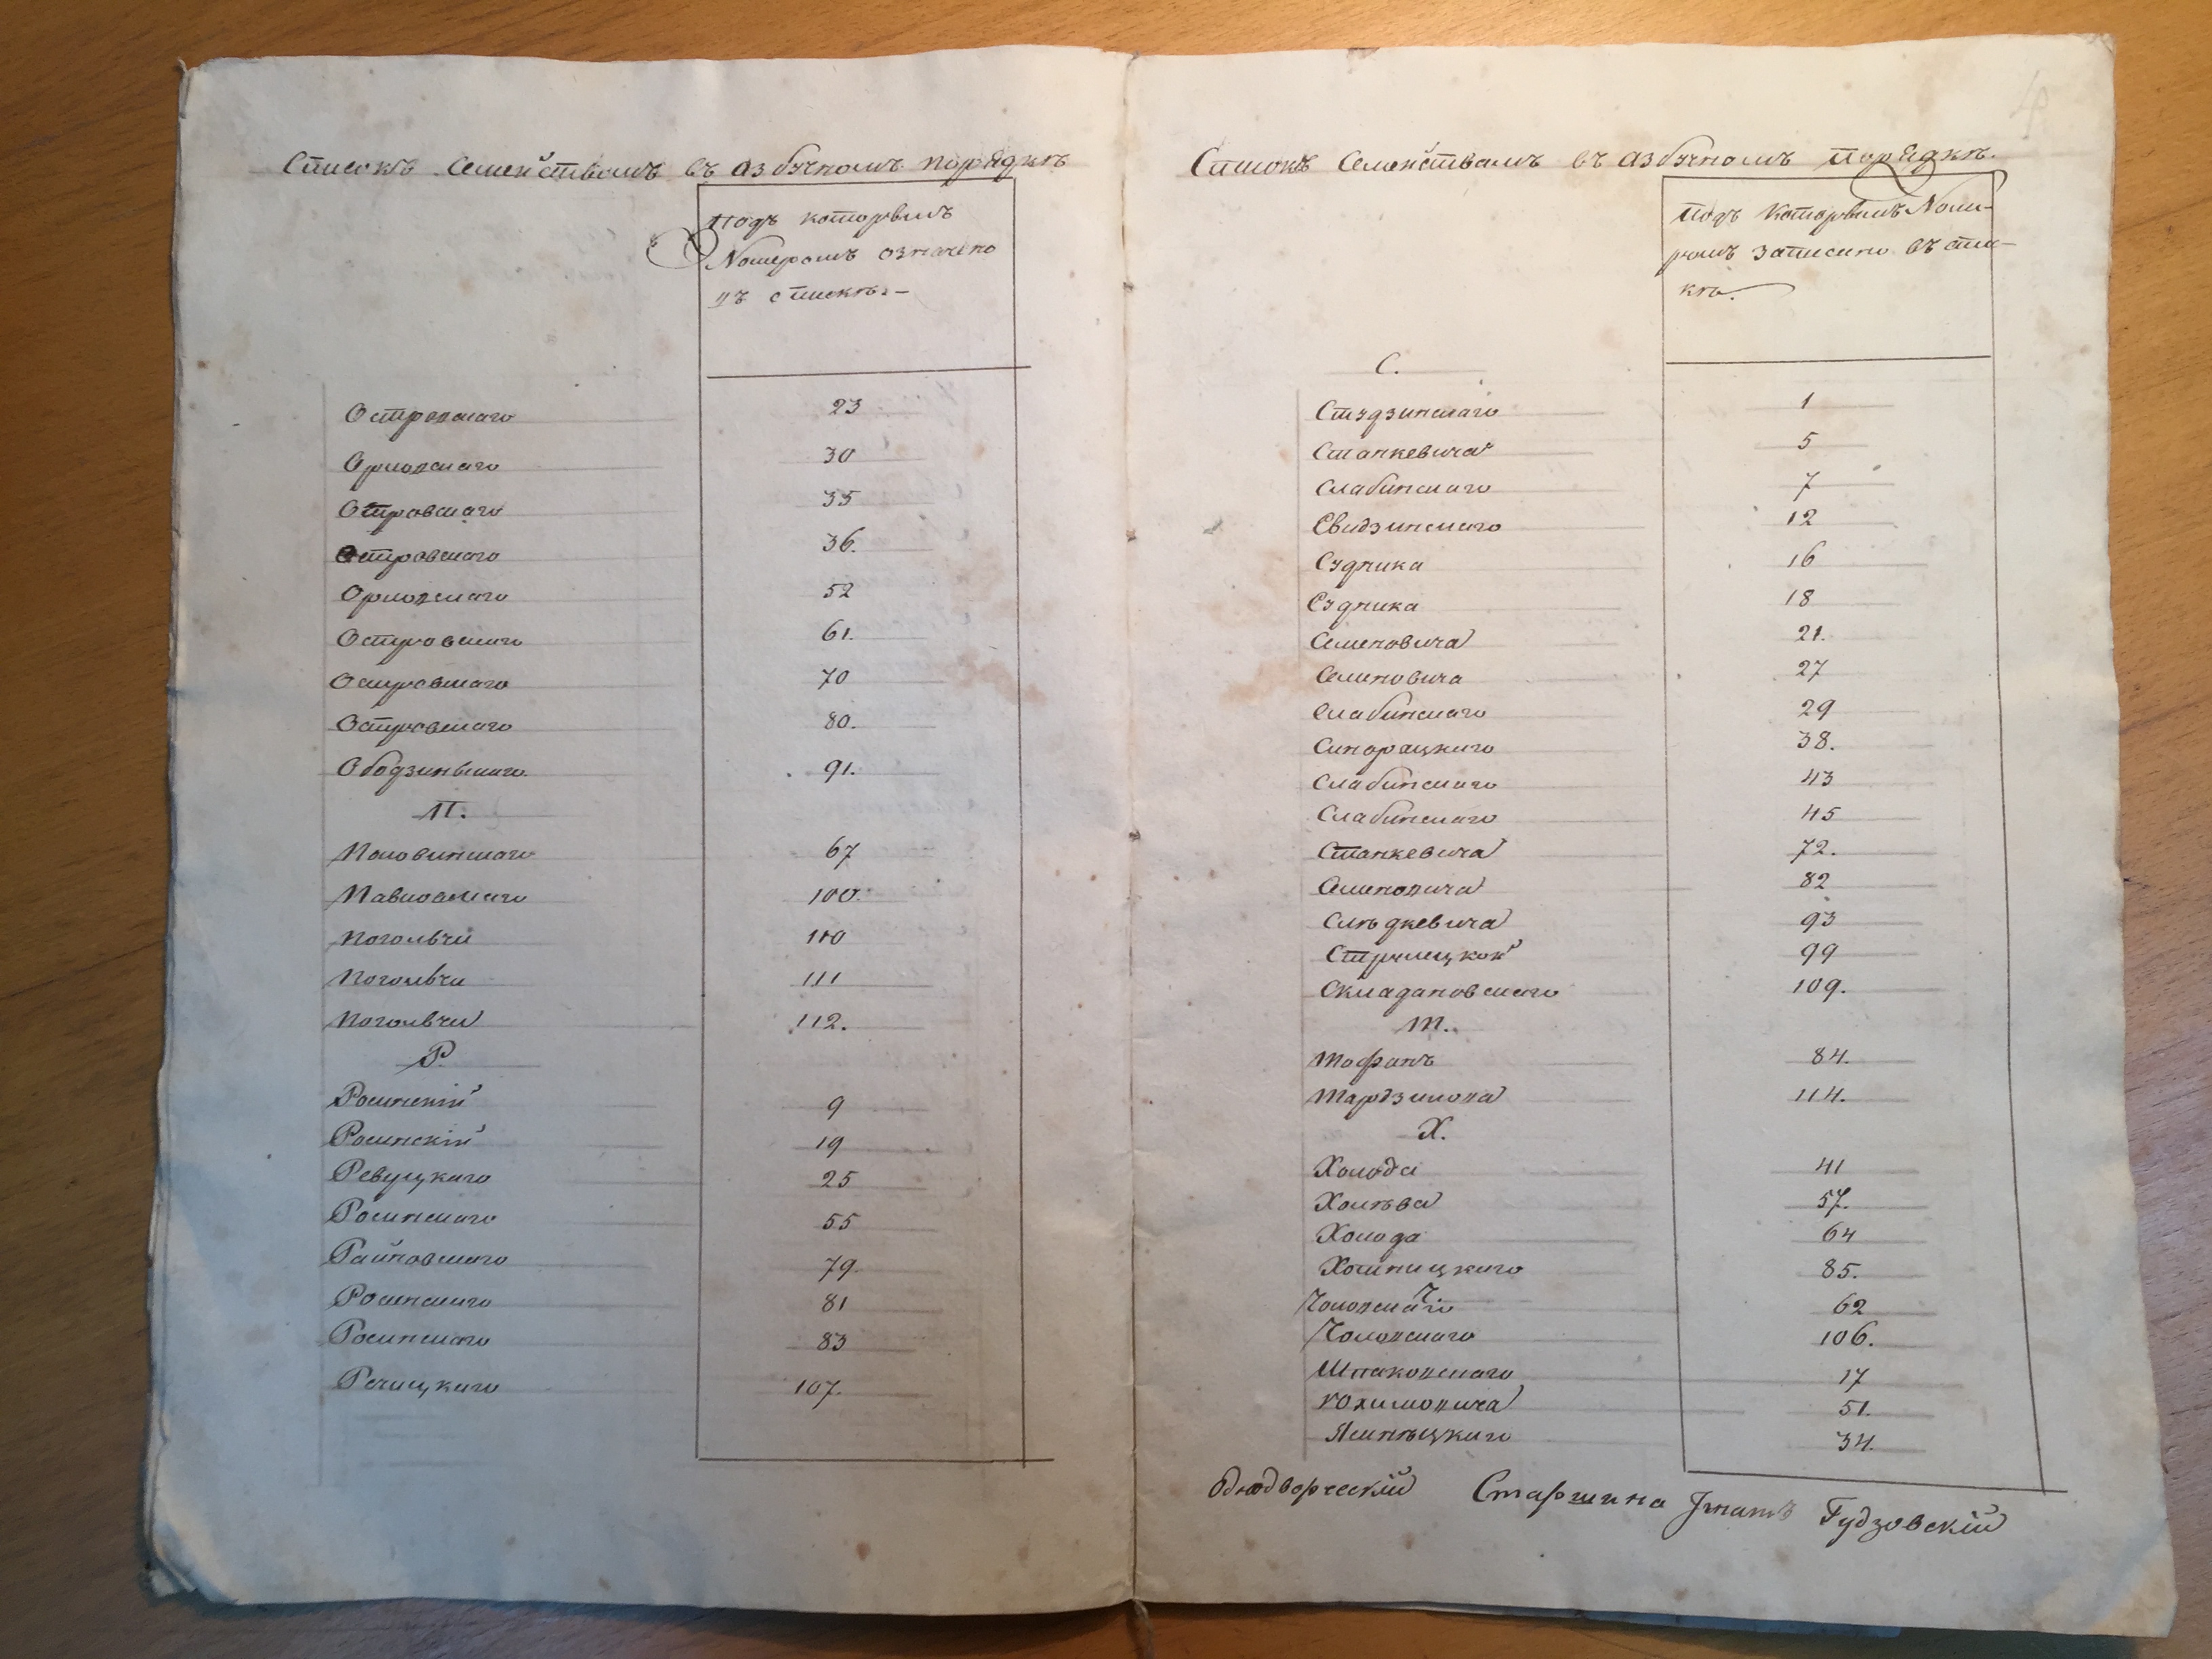 Списокъ Семействамъ въ азбучномъ порядкѣ
Подъ которымъ
Номеромъ означено
въ спискѣ.
Островскаго 23
Орловскаго 30
Островскаго 35
Островскаго 36.
Орловскаго 52
Островскаго 61.
Островскаго 70
Островскаго 80.
Ободзиньскаго 91.
П.
Половинскаго 67
Павловскаго 100.
Поголѣчи 110
Поголѣчи 111
Поголѣчи 112.
Р.
Росинскій 9
Росинскій 19
Ревуцкаго 25
Росинскаго 55
Райковскаго 79.
Росинскаго 81
Росинскаго 83
Речицкаго 107.
Списокъ Семействамъ въ азбучномъ порядкѣ.
Подъ которымъ Номе-
ромъ записано въ спи-
кѣ.
С.
Студзинскаго 1
Станкевича 5
Слабинскаго 7
Свидзинскаго 12
Судника 16
Судника 18
Семеновича 21.
Семеновича 27
Слабинскаго 29
38.
Слабинскаго 43
Слабинскаго 45
Станкевича 72.
Семеновича 82
Слѣдкевича 93
99
Складановскаго 109.
Т.
Тофанъ 84.
114.
Х.
Холода 41
Холѣва 57.
Холода 64
85.
Ч.
Чоловскаго 62
Чоловскаго 106.
Шпаковскаго 17
Юхимовича 51.
Яснѣцкаго 34.
Однодворческій Старшина Игнатъ Гудзовскій